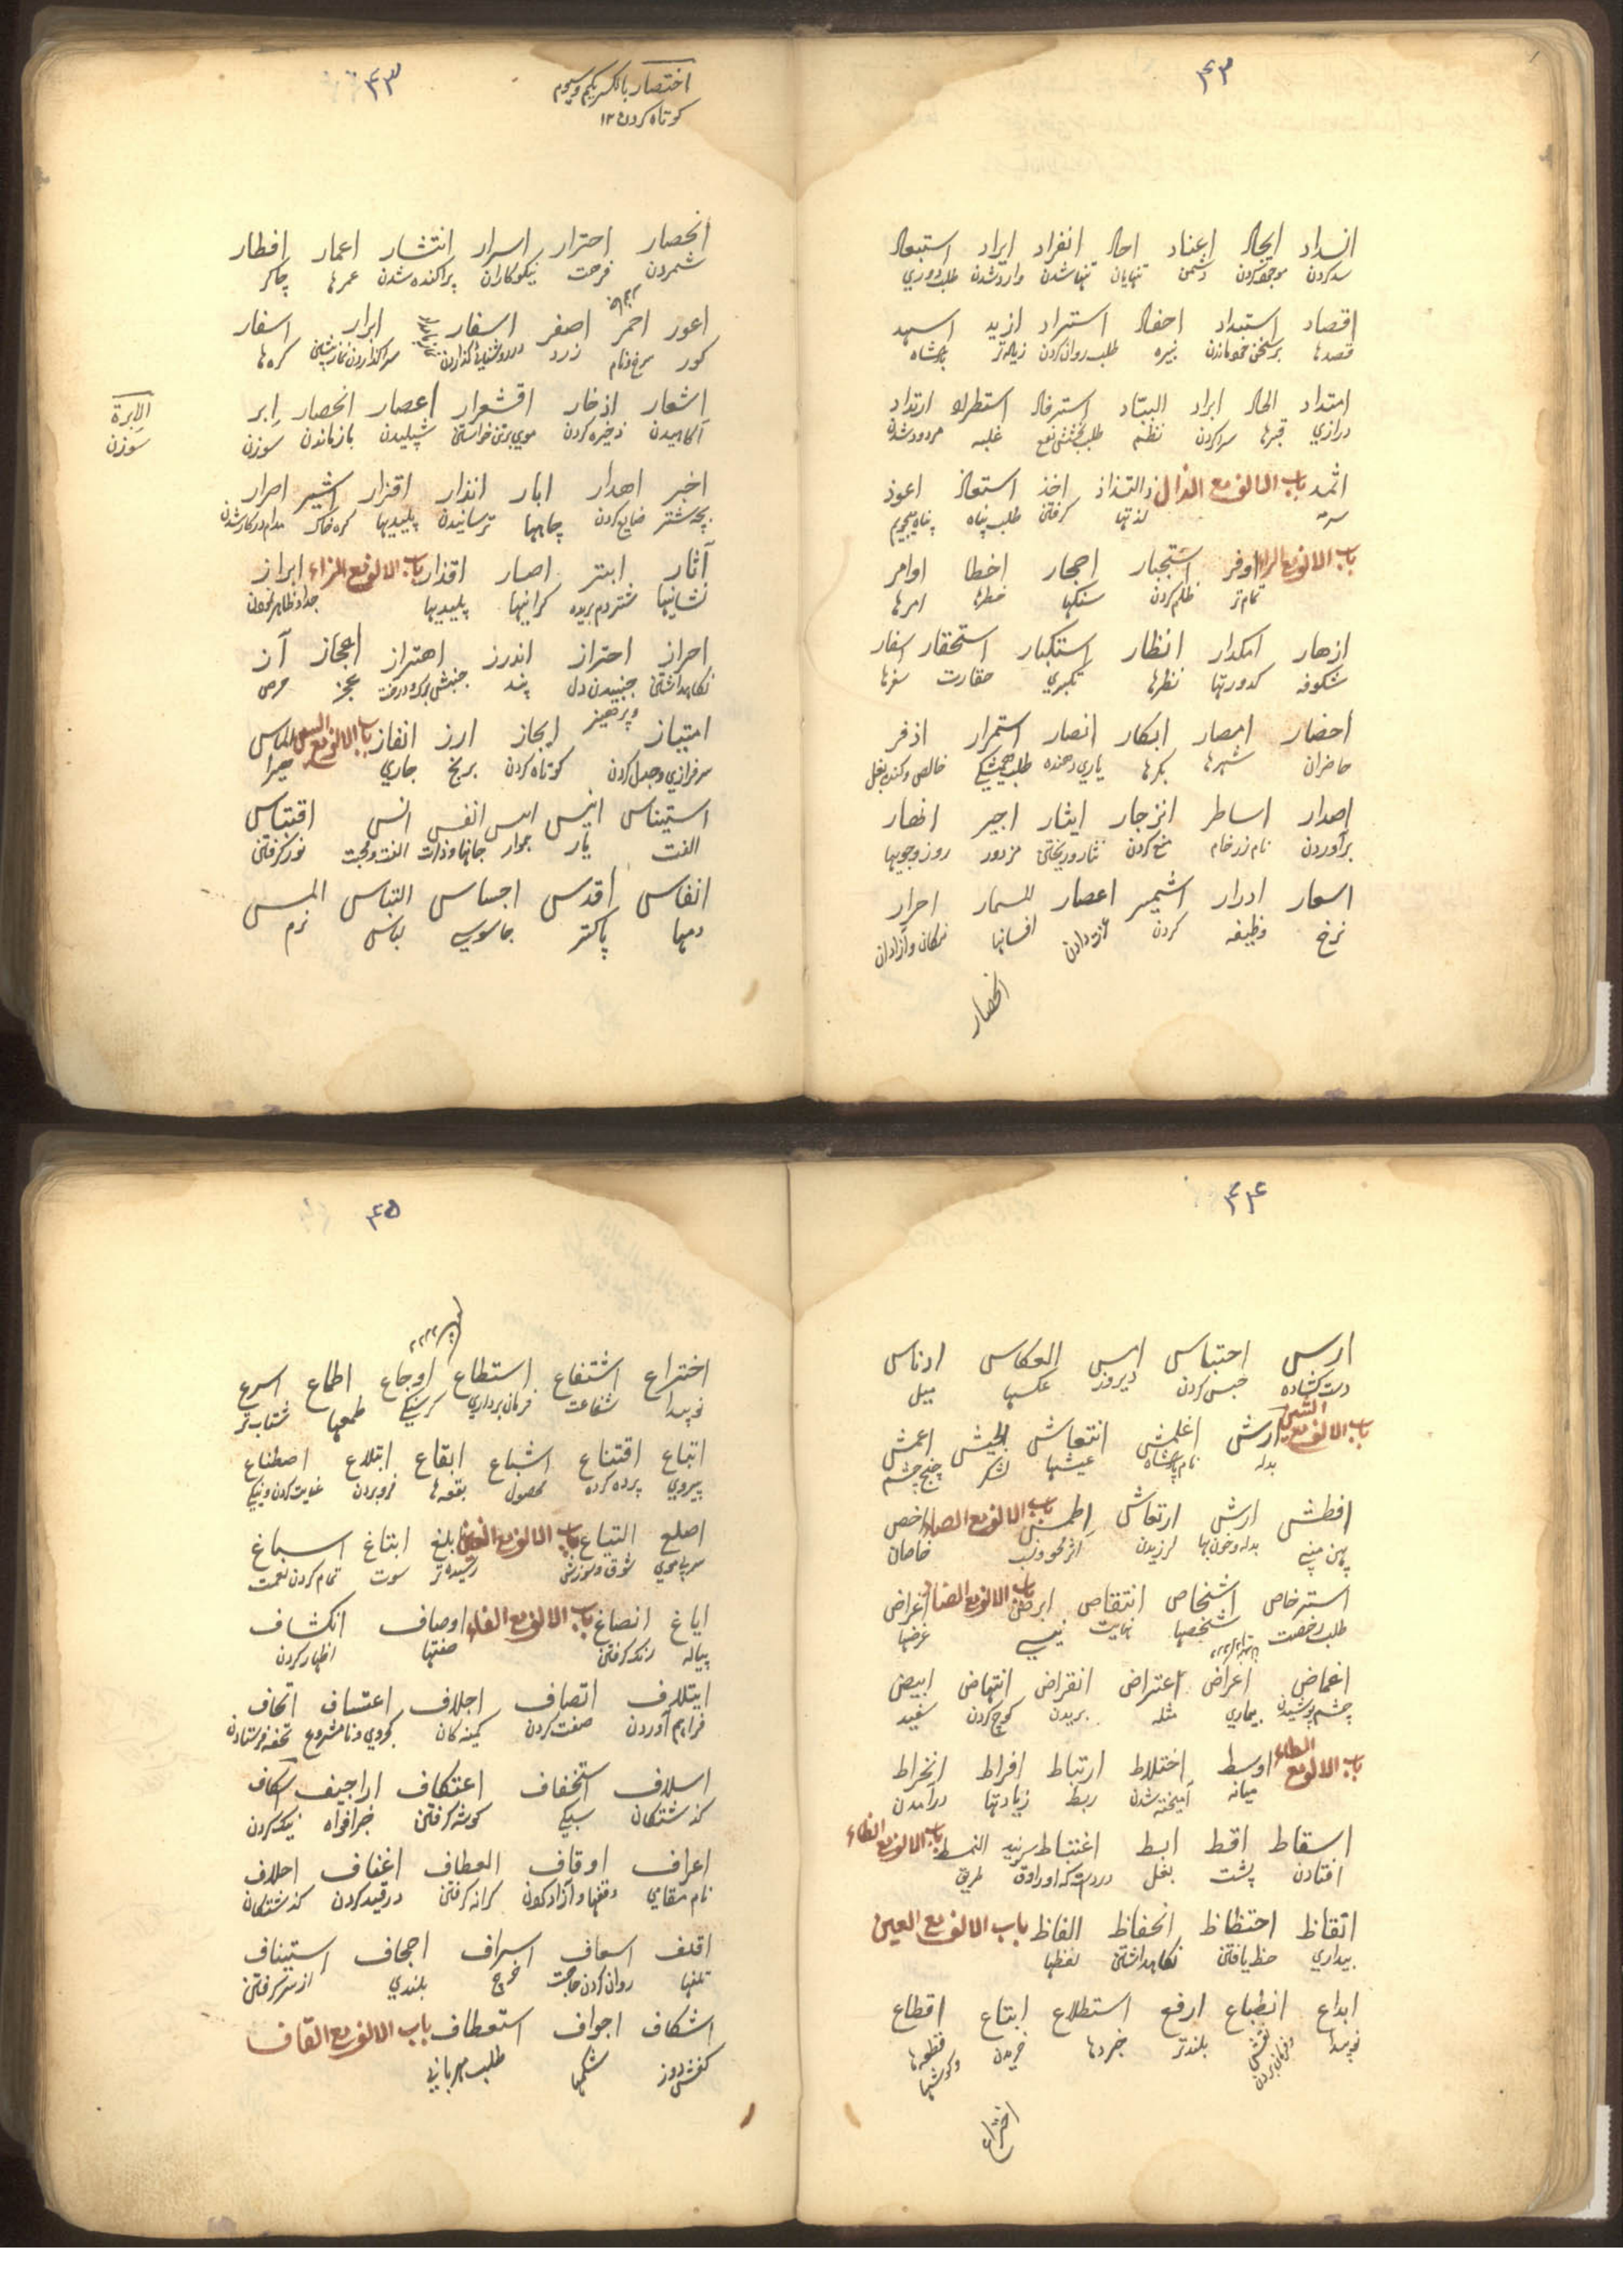 ۴۲
انسداد ایجاد اعناد احاد انفراد ایراد استبعاد
سد کردن موجود کردن دشمن تنهایان تنها شدن وارد شدن طلب دوری
اقصاد استبداد احفاد استبراد ازید اسپهبد
قصدها نبیره طلب روان کردن زیاده‌تر پادشاه
امتداد الحاد ابراد استرفاد استطراد ارتداد
درازی قبرها سرد کردن نظم طلب بخشش نفع غلبه مردود شدن
اثمد باب الالف مع الذال التذاذ اخذ استعاذ اعوذ
سرمه لذتها گرفتن طلب پناه پناه میجویم
باب الالف مع الراء اوفر استجبار احجار اخطار اوامر
تمام تر ظلم کردن سنگها خطرها امرها
ازهار اکدار انظار استکبار استحقار اسفار
شکوفه کدورتها نظرها تکبری حقارت سفرها
احضار امصار ابکار انصار استمرار اذفر
حاضران شهرها بکرها یاری دهنده طلب همیشگی خالص و گنده بغل
اصدار اساطر انزجار ایثار اجیر انهار
برآوردن منع کردن نثار و ریختن مزدور روز و جویها
اسعار ادرار اعصار احرار
نرخ وظیفه کردن افسانها نیکان و آزادان
انحصار
۴۳
اختصار بالکسر یکم و سیوم
کوتاه کردن ۱۲
انحصار احترار اسرار انتشار اعمار افطار
شمردن فرحت نیکوکاران پراکنده شدن عمرها چاکر
اعور احمر اصفر اسفار ابرار اسفار
کور سرخ فام زرد کره‌ها
اشعار اذخار اقشعرار اعصار انحصار ابر
آگاهیدن ذخیره کردن موی برتن خواستن شپلیدن بازماندن سوزن
الابرة
سوزن
اخبر اهدار ابار انذار اقذار اصرار
بچه شتر ضایع کردن چاهها ترسانیدن پلیدیها کره خاک مدام در کار شدن
آثار ابتر اصار اقذار باب الالف مع الزاء ابراز
نشانیها شتر دم بریده گرانیها پلیدیها جدا و ظاهر نمودن
احراز احتراز اندرز اهتزاز اعجاز آز
نگاهداشتن جنبیدن دل و پرهیز پند عجز حرص
امتیاز ایجاز ارز انفاز باب الالف مع السین الماس
سرفرازی و جدا کردن کوتاه کردن برنج جاری هیرا
استیناس انیس انفس انس اقتباس
الفت یار جوار جانها و ذات الفت و محبت نور گرفتن
انفاس اقدس اجساس التباس املس
دمها پاکتر جاسوسی لباس نرم
۴۴
ارس احتباس امس انعکاس ادناس
دست گشاده حبس کردن دیروز عکسها میل
باب الالف مع الشین ارش اغلمش انتعاش الجیش اعمش
بدله نام پادشاه عیشها لشکر
افطش ارش ارتعاش اطمش باب الالف مع الصاد اخص
پهن بینی بدله و خون بها لرزیدن خاصان
استرخاص اشخاص انتقاص ابرص باب الالف مع الضاد اغراض
طلب رخصت شخصها نهایت غرضها
اغماض اعراض اعتراض انقراض انتهاض ابیض
چشم پوشیدن بیماری مثله بریدن کوچ کردن سفید
باب الالف مع الطاء اوسط اختلاط ارتباط افراط انخراط
میانه آمیخته شدن ربط زیادتها درآمدن
اسقاط اقط ابط اغتباط النمط باب الالف مع الظاء
افتادن پشت بغل طریق
اتقاظ احتظاظ انحفاظ الفاظ باب الالف مع العین
بیداری حظ یافتن نگاهداشتن لفظها
ابداع انطباع ارفع استطلاع ابتاع اقطاع
نوپیدا نقش و فرمان بردن بلندتر خبردها خریدن قطعه‌ها و گوشها
اختراع
۴۵
اختراع اشتفاع استطاع اوجاع اطماع اسرع
نوپیدا شفاعت فرمان برداری گرسنگی طمعها شتاب تر
اتباع اقتناع اشباع ابقاع ابتلاع اصطناع
پیروی پرده کرده محصول بقعه‌ها فروبردن عنایت کردن و نیکی
اصلع التیاع باب الالف مع الغین ابلغ ابتاغ اسباغ
سر بی موی شوق و سوزش رسیده تر سوت تمام کردن نعمت
ایاغ انصاغ باب الالف مع الفاء اوصاف انکشاف
پیاله رنگ گرفتن صفتها اظهار کردن
ایتلاف اتصاف اجلاف اعتساف اتحاف
فراهم آوردن صفت کردن کمینه کان کجروی و نامشروع تحفه فرستادن
اسلاف استخفاف اعتکاف اراجیف اسکاف
گذشتگان سبکی گوشه گرفتن خبر افواه
اعراف اوقاف انعطاف اغفاف احلاف
نام مقامی وقفها و آزاد کردن کرانه گرفتن در قید کردن گذشتگان
اقلف اسعاف اسراف اجحاف استیناف
تلفها روان کردن حاجت خرج بلندی از سر گرفتن
اشکاف اجواف استعطاف باب الالف مع القاف
کفش دوز شکمها طلب مهربانی